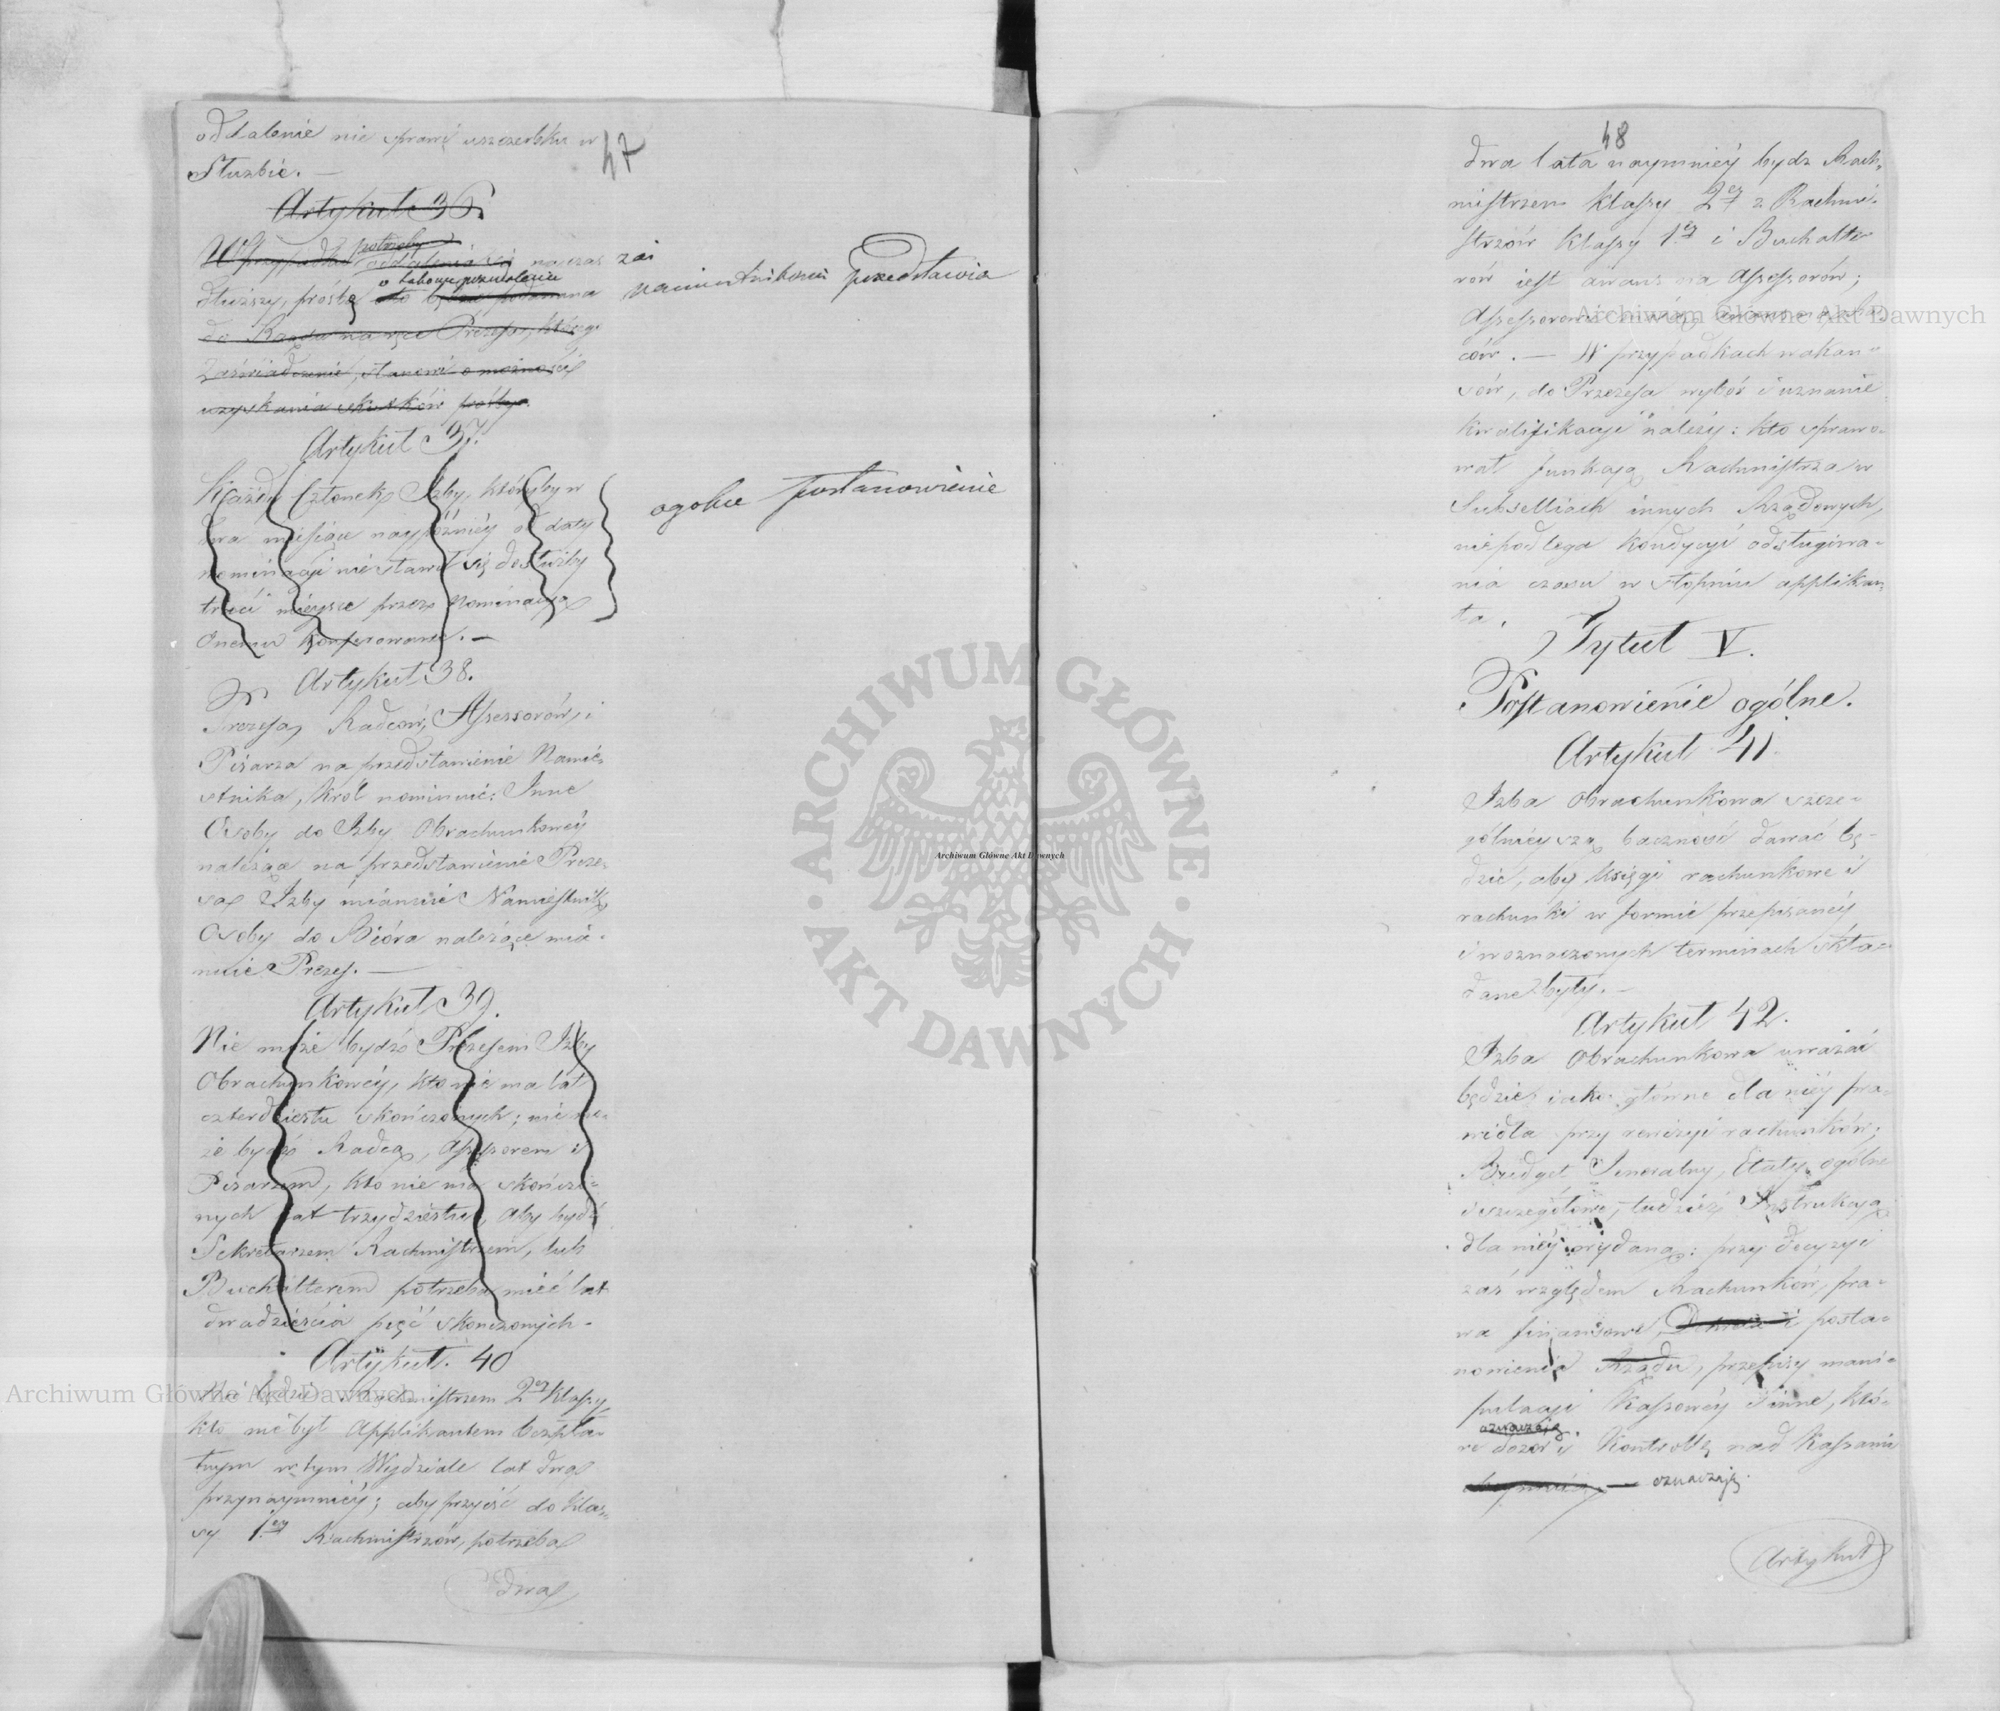 47
oddalenie nie sprawi uszczerbku w
Służbie. —
Artykuł 36.
potrzeby
W przypadku oddalenia się na czas zaś
o takowe pozwolenie
dłuższy, prośbę podawana
namiestnikowi przedstawia
do Rządu na ręce Prezesa, którego
Zaświadczenie, stanowi o możności
uzyskania skutków prośby.
Artykuł 37.
Każdy Członek Izby, któryby w
dwa miesiące naypóźniéy od daty
nominacyi nie stawił się do służby
traci mieysce przez Nominacyą
Onemu konferowane. —
ogolne postanowienie
Artykuł 38.
Prezesa, Radców, Assessorów, i
Pisarza na przedstawienie Namie-
stnika, Król nominuie: Inne
Osoby do Izby Obrachunkowéy
należące na przedstawienie Preze-
sa Izby mianuie Namiestnik,
Osoby do Bióra należące mia-
nuie Prezes. —
Artykuł 39.
Nie może bydź Prezesem Izby
Obrachunkowéy, kto nie ma lat
czterdziestu skończonych; nie mo-
że bydź Radcą, Assessorem i
Pisarzem, kto nie ma skończo-
nych lat trzydziestu, aby bydź
Sekretarzem Rachmistrzem, lub
Buchalterem potrzeba mieć lat
dwadzieścia pięć skończonych.
Artykuł. 40
Nie będzie Rachmistrzem 2éy Klassy
kto nie był Applikantem bezpła-
tnym w tym Wydziale lat dwa
przynaymniéy; aby przyiść do klas-
sy 1éy Rachmistrzów, potrzeba
dwa
48
dwa lata naymniéy bydź Rach-
mistrzem klassy 2éy z Rachmi-
strzów klassy 1éy i Buchalte-
rów iest awans na Assessorów;
Assessorowie maią awans na Rad-
ców. — W przypadkach wakan-
sów, do Prezesa wybór i uznanie
kwalifikacyi należy: kto sprawo-
wał funkcyą Rachmistrza w
Subselliach innych Rządowych,
nie podlega kondycyi odsługiwa-
nia czasu w stopniu applikan-
ta.
Tytuł V.
Postanowienie ogólne.
Artykuł 41.
Izba Obrachunkowa szcze-
gólnieyszą baczność dawać bę-
dzie, aby księgi rachunkowe i
rachunki w formie przepisanéy
i w oznaczonych terminach skła-
dane były. —
Artykuł 42.
Izba Obrachunkowa uważać
będzie iako główne dla niéy pra-
widła przy rewizyi rachunków;
Budget Jeneralny, Etaty ogólne
i szczegółowe, tudzież Instrukcyą
dla niéy wydaną: przy decyzyi
zaś względem Rachunków, pra-
wa finansowe, Dekreta i posta-
nowienia Rządu, przepisy mani-
pulacyi Kassowéy i inne, któ-
oznaczaią
re dozór i Kontrollę nad Kassami
oznaczaią.
Artykuł
Archiwum Główne Akt Dawnych
Archiwum Główne Akt Dawnych
Archiwum Główne Akt Dawnych
ARCHIWUM GŁÓWNE · AKT DAWNYCH ·